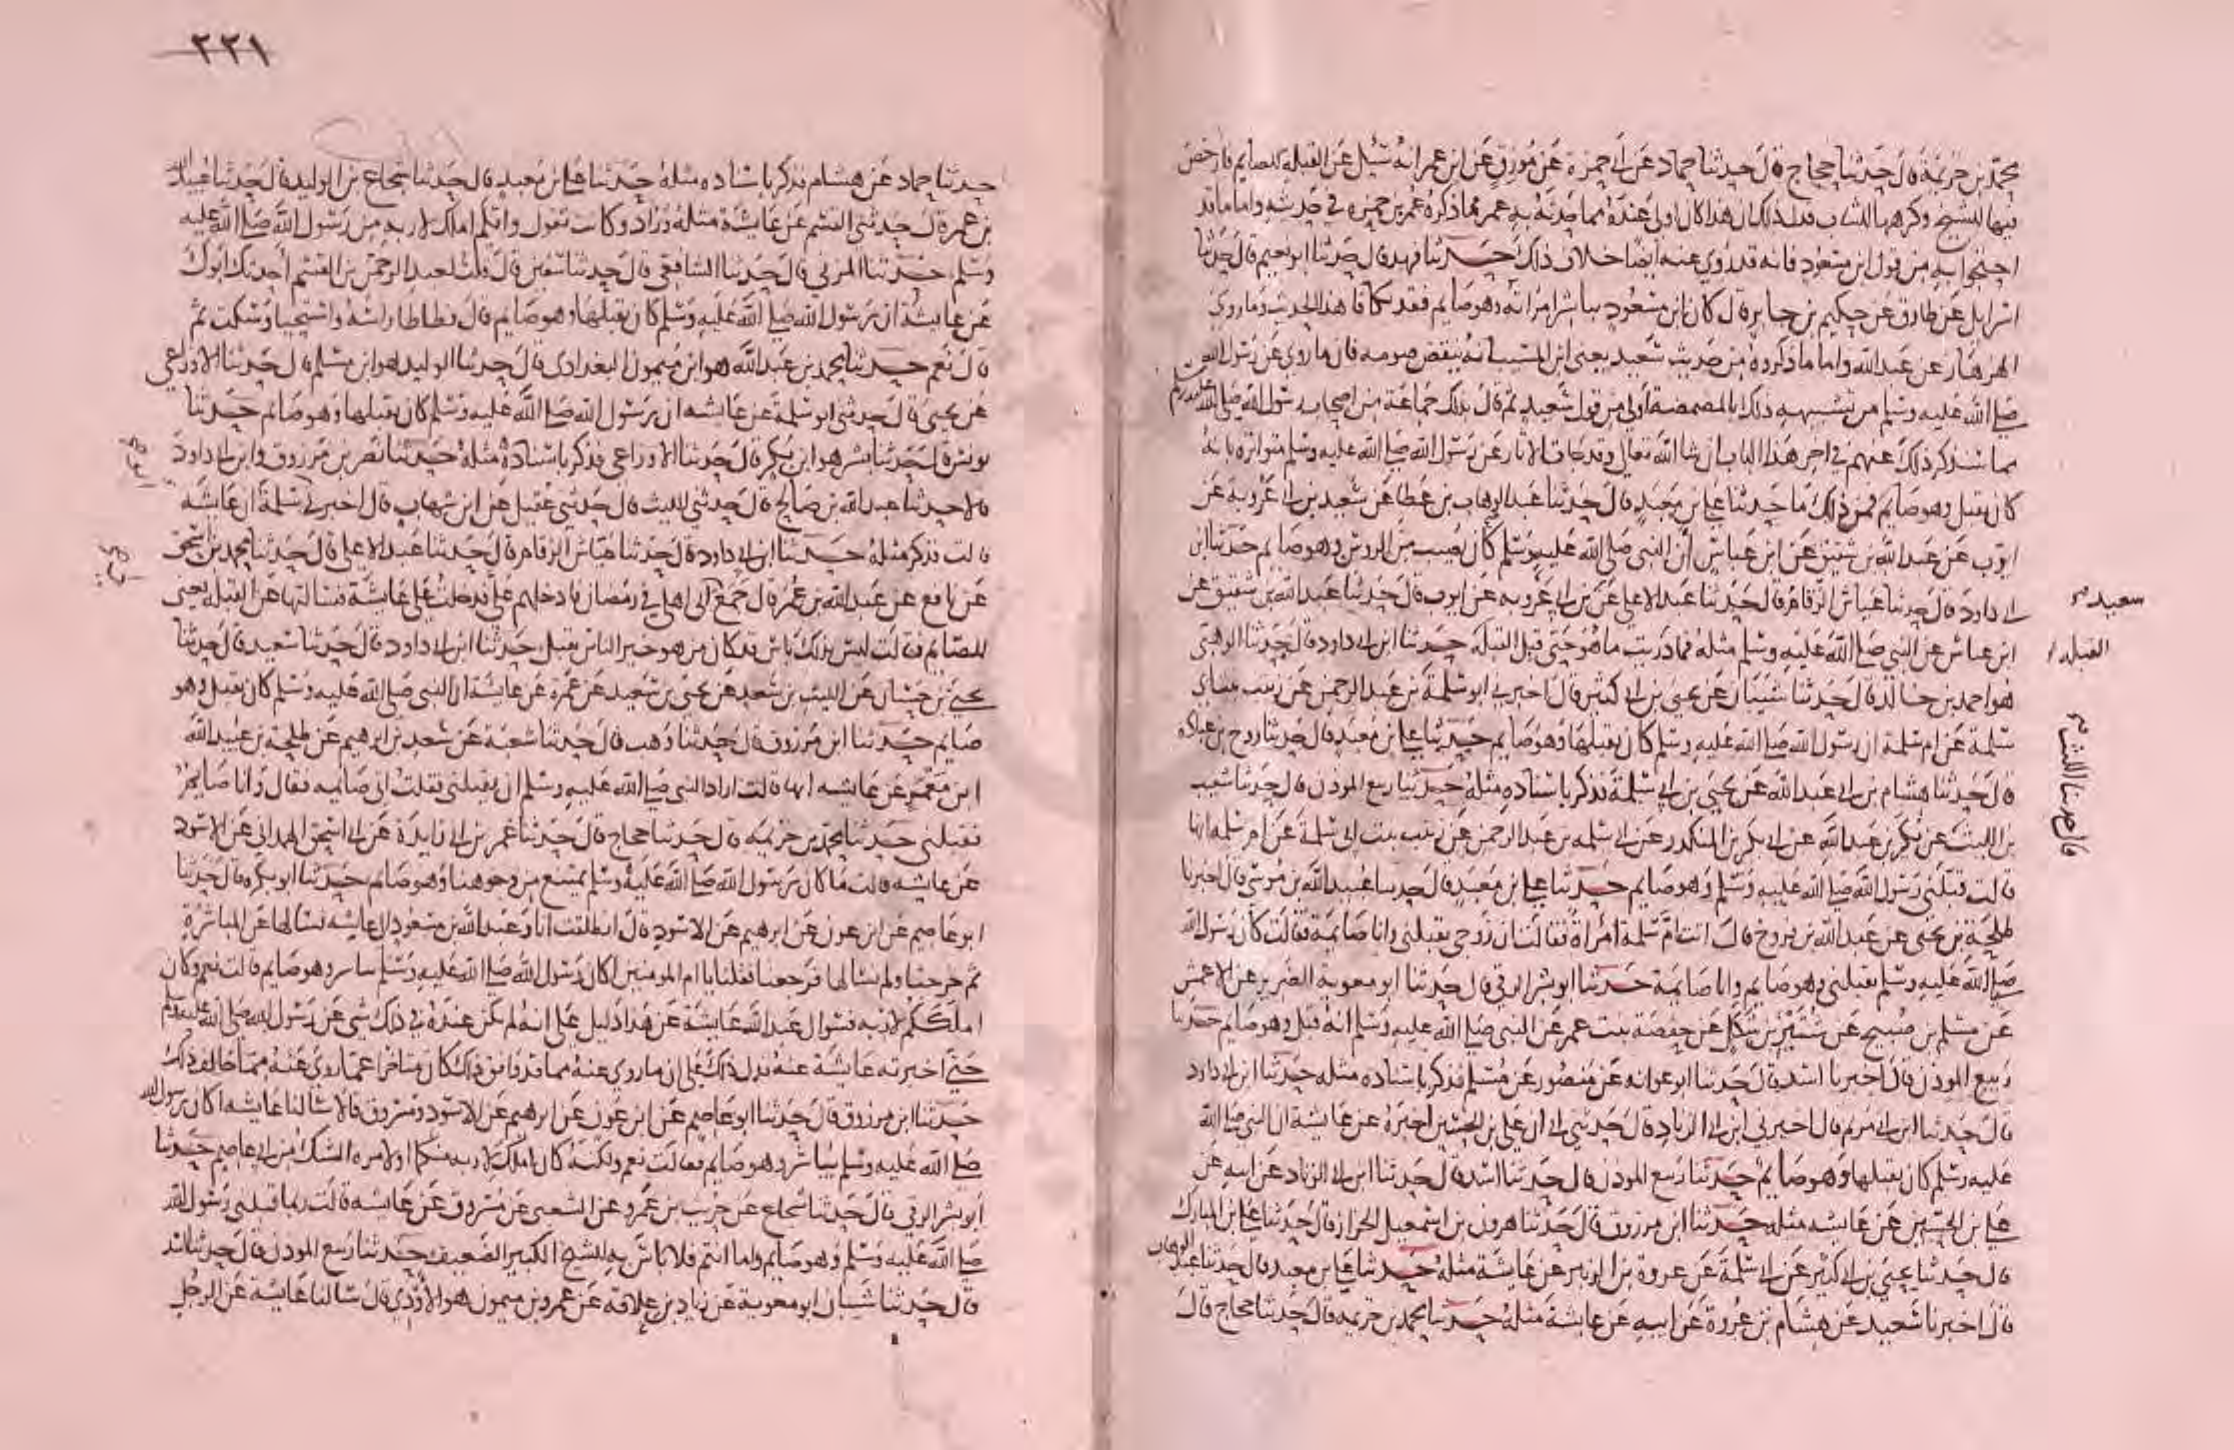 محمد بن خزيمة قال حدثنا حجاج قال حدثنا حماد عن ابي حمزة عن مورق عن ابن عمر انه سئل عن القبلة للصايم فارخص
فيها للشيخ وكرهها للشاب فدل ذلك ان هذا كان اولى عنده مما حدثه به عمر مما ذكره عمر بن حمزه في حديثه واما ما قد
احتجوا به من قول ابن مسعود فانه قد روي عنه ايضا خلاف ذلك حدثنا فهد قال حدثنا ابو نعيم قال حدثنا
اسرايل عن طارق عن حكيم بن جابر قال كان ابن مسعود يباشر امراته وهو صايم فقد تكافا هذا الحديث وما روي
الهزهاز عن عبد الله واما ما ذكروه من حديث سعيد يعني ابن المسيب انه ينقض صومه فان ما روي عن رسول الله
صلى الله عليه وسلم من تشبيهه ذلك بالمضمضة اولى من قول سعيد ثم قال بذلك جماعة من اصحاب رسول الله صلى الله عليه وسلم
مما سنذكر ذلك عنهم في اخر هذا الباب ان شا الله تعالى وقد جات الاثار عن رسول الله صلى الله عليه وسلم متواترة بانه
كان يقبل وهو صايم فمن ذلك ما حدثنا علي بن معبد قال حدثنا عبد الوهاب بن عطا عن سعيد بن ابي عروبة عن
ايوب عن عبد الله بن شقيق عن ابن عباس ان النبي صلى الله عليه وسلم كان يصيب من الروس وهو صايم حدثنا ابن
ابي داود قال حدثنا عياش الرقام قال حدثنا عبد الاعلى عن بن ابي عروبه عن ايوب قال حدثنا عبد الله بن شقيق عن
سعيد صح
ابن عباس عن النبي صلى الله عليه وسلم مثله فما دريت ما هو حتى قيل القبلة حدثنا ابن ابي داود قال حدثنا الوهبي
القبله
هو احمد بن خالد قال حدثنا شيبان عن يحيى بن ابي كثير قال اخبرني ابو سلمة بن عبد الرحمن عن زينب بنت ابي
سلمة عن ام سلمة ان رسول الله صلى الله عليه وسلم كان يقبلها وهو صايم حدثنا علي بن معبد قال حدثنا روح بن عباده
قال حدثنا هشام بن ابي عبد الله عن يحيى بن ابي سلمة فذكر باسناده مثله حدثنا ربيع الموذن قال حدثنا شعيب
قال حدثنا الليث صح
بن الليث عن بكر بن عبد الله عن ابي بكر بن المنكدر عن ابي سلمه بن عبد الرحمن عن زينب بنت ابي سلمة عن ام سلمه انها
قالت قبلني رسول الله صلى الله عليه وسلم وهو صايم حدثنا علي بن معبد قال حدثنا عبيد الله بن موسى قال اخبرنا
طلحة بن يحيى عن عبد الله بن فروخ قال اتت ام سلمة امراة فقالت ان زوجي يقبلني وانا صايمة فقالت كان رسول الله
صلى الله عليه وسلم يقبلني وهو صايم وانا صايمة حدثنا ابو بشر الرقي قال حدثنا ابو معوية الضرير عن الاعمش
عن مسلم بن صبيح عن شتير بن شكل عن حفصة بنت عمر عن النبي صلى الله عليه وسلم انه قبل وهو صايم حدثنا
ربيع الموذن قال اخبرنا اسد قال حدثنا ابو عوانه عن منصور عن مسلم فذكر باسناده مثله حدثنا ابن ابي داود
قال حدثنا ابن ابي مريم قال اخبرني ابن ابي الزناد قال حدثني ابي ان علي بن الحسين اخبره عن عايشة ان النبي صلى الله
عليه وسلم كان يقبلها وهو صايم حدثنا ربيع الموذن قال حدثنا اسد قال حدثنا ابن ابي الزناد عن ابيه عن
علي بن الحسين عن عايشه مثله حدثنا ابن مرزوق قال حدثنا هرون بن اسمعيل الخزاز قال حدثنا علي بن المبارك
قال حدثنا يحيى بن ابي كثير عن ابي سلمة عن عروة بن الزبير عن عايشة مثله حدثنا علي بن معبد قال حدثنا عبد الوهاب
قال اخبرنا سعيد عن هشام بن عروة عن ابيه عن عايشة مثله حدثنا محمد بن خزيمه قال حدثنا حجاج قال
٢٢١
حدثنا حماد عن هشام فذكر باسناده مثله حدثنا علي بن معبد قال حدثنا شجاع بن الوليد قال حدثنا عبيد الله
بن عمر قال حدثني القسم عن عايشة مثله وزاد وكانت تقول وايكم املك لاربه من رسول الله صلى الله عليه
وسلم حدثنا المزني قال حدثنا الشافعي قال حدثنا سفين قال قلت لعبد الرحمن بن القسم احدثك ابوك
عن عايشة ان رسول الله صلى الله عليه وسلم كان يقبلها وهو صايم قال فطاطا راسه واستحيا وسكت ثم
قال نعم حدثنا محمد بن عبد الله هو ابن ميمون البغدادي قال حدثنا الوليد هو ابن مسلم قال حدثنا الاوزاعي
عن يحيى قال حدثني ابو سلمة عن عايشه ان رسول الله صلى الله عليه وسلم كان يقبلها وهو صايم حدثنا
يونس قال حدثنا بشر هو ابن بكر قال حدثنا الاوزاعي فذكر باسناده مثله حدثنا نصر بن مرزوق وابن ابي داود
قالا حدثنا عبد الله بن صالح قال حدثني الليث قال حدثني عقيل عن ابن شهاب قال اخبرني ابو سلمة ان عايشه
قالت فذكر مثله حدثنا ابن ابي داود قال حدثنا عياش الرقام قال حدثنا عبد الاعلى قال حدثنا محمد بن اسحق
عن نافع عن عبد الله بن عمر قال جمع ابي اهلي في رمضان فادخلهم علي فدخلت على عايشة فسالتها عن القبلة يعني
للصايم فقالت ليس بذلك باس قد كان من هو خير الناس يقبل حدثنا ابن ابي داود قال حدثنا سعيد قال حدثنا
يحيى بن حسان عن الليث بن سعد عن يحيى بن سعيد عن عمرة عن عايشة ان النبي صلى الله عليه وسلم كان يقبل وهو
صايم حدثنا ابن مرزوق قال حدثنا وهب قال حدثنا شعبة عن سعد بن ابرهيم عن طلحة بن عبيد الله
ابن معمر عن عايشه انها قالت اراد النبي صلى الله عليه وسلم ان يقبلني فقلت اني صايمه فقال وانا صايم
فقبلني حدثنا محمد بن خزيمه قال حدثنا حجاج قال حدثنا عمر بن ابي زايدة عن ابي اسحق الهمداني عن الاسود
عن عايشه قالت ما كان رسول الله صلى الله عليه وسلم يمتنع من وجوهنا وهو صايم حدثنا ابو بكره قال حدثنا
ابو عاصم عن ابن عون عن ابرهيم عن الاسود قال انطلقت انا وعبد الله بن مسعود الى عايشه نسالها عن المباشرة
ثم خرجنا ولم نسالها فرجعنا فقلنا يا ام المومنين اكان رسول الله صلى الله عليه وسلم يباشر وهو صايم قالت نعم وكان
املككم لاربه فسوال عبد الله عايشة عن هذا دليل على انه لم يكن عنده في ذلك شي عن رسول الله صلى الله عليه وسلم
حتى اخبرته عايشة عنه فدل ذلك على ان ما روي عنه مما قد وافق ذلك كان متاخرا عما روي عنه مما خالف ذلك
حدثنا ابن مرزوق قال حدثنا ابو عاصم عن ابن عون عن ابرهيم عن الاسود ومسروق قالا سالنا عايشه اكان رسول الله
صلى الله عليه وسلم يباشر وهو صايم فقالت نعم ولكنه كان املك لاربه منكما او لامره الشك من ابي عاصم حدثنا
ابو بشر الرقي قال حدثنا شجاع عن حريث بن عمرو عن الشعبي عن مسروق عن عايشه قالت ربما قبلني رسول الله
صلى الله عليه وسلم وهو صايم واما انتم فلا باس به للشيخ الكبير الضعيف حدثنا ربيع الموذن قال حدثنا اسد
قال حدثنا شيبان ابو معوية عن زياد بن علاقه عن عمرو بن ميمون هو الاودي قال سالنا عايشة عن الرجل